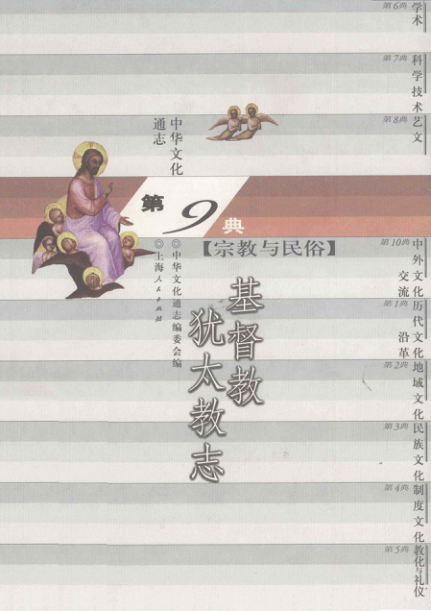 第6典 学术
第7典 科学技术
第8典 艺文
中华文化
通志
第9典
【宗教与民俗】
◎中华文化通志编委会编
◎上海人民出版社
基督教
犹太教志
第10典 中外文化
交流
第1典 历代文化
沿革
第2典 地域文化
第3典 民族文化
第4典 制度文化
第5典 教化与礼仪